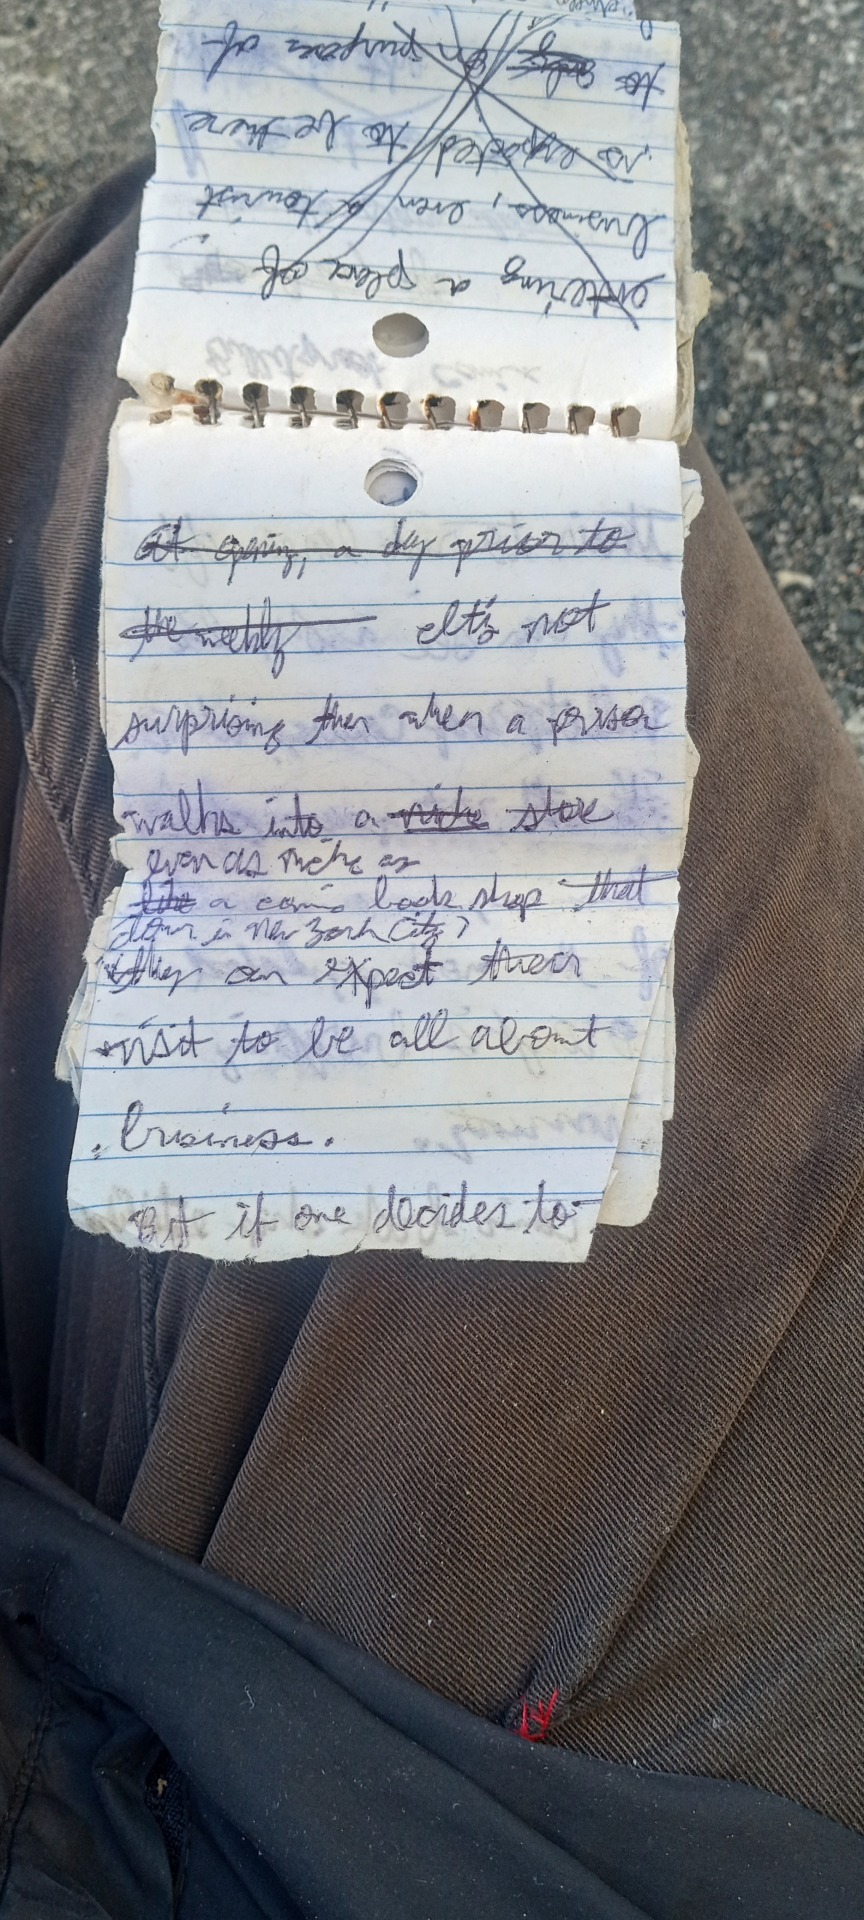 entering a place of
business, even a tourist
is expected to be there
to on purpose of
At opening, a day prior to
the weekly It's not
surprising then when a person
walks into a niche store
even as niche as
like a comic book shop that
down in New York City,
they can expect their
visit to be all about
business.
But if one decides to